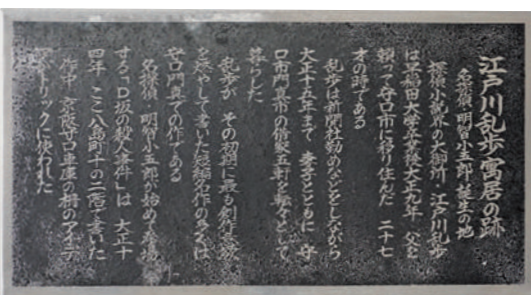 江戸川乱歩寓居の跡
名探偵・明智小五郎誕生の地
探偵小説界の大御所・江戸川乱歩
は早稲田大学卒業後大正九年 父を
頼って守口市に移り住んだ 二十七
才の時である
乱歩は新聞社勤めなどをしながら
大正十五年まで 妻子とともに 守
口市門真市の借家五軒を転々として
暮らした
乱歩が その初期に最も創作意欲
を燃やして書いた短編名作の多くは
守口門真での作である
名探偵・明智小五郎が始めて登場
する「D坂の殺人事件」は 大正十
四年 ここ八島町十の二階で書いた
作中 京阪守口車庫の柵のアイデア
がトリックに使われた